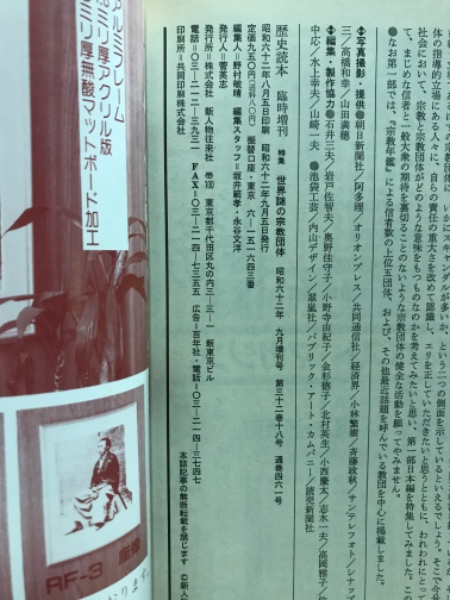 いかにスキャンダルが多いか、という二つの側面を示しているといえるでしょう。そこで今
体の指導的立場にある人々に、自らの責任の重大さを改めて認識し、エリを正していただきたいと思うとともに、われわれにとって
社会において、宗教と宗教団体がどのような意味をもつものなのかを考えてみたいと思い、第一部日本編を特集してみました。この
て、まじめな信者と一般大衆の期待を裏切ることのないような宗教団体の健全な活動を願ってやみません。
●なお第一部では、『宗教年鑑』による信者数の上位五団体、および、その他最近話題を呼んでいる教団を中心に掲載しました。
写真撮影・提供●朝日新聞社/阿多理/オリオンプレス/共同通信社/経済界/小林繁廣/斉藤政秋/サンデレフォト/シナップ
三/高橋和幸/山田満穂
編集・製作協力●石井三夫/岩戸佐智夫/奥野佳守子/小野寺由紀子/金杉徳子/北村英生/小西慶太/志水一夫/高岡雅子/
中応/水上幸夫/山崎一夫 ●池袋工芸/内山デザイン/翠嵐社/パブリック・アート・カムパニー/読売新聞社
歴史読本 臨時増刊 特集 世界謎の宗教団体 昭和六十二年 九月増刊号 第三十二巻十八号 通巻四六一号
昭和六十二年八月五日印刷 昭和六十二年九月五日発行
定価九五〇円(送料八〇円) 振替口座・東京 六―一五一六四三番
編集人=野村敏晴 編集スタッフ=坂井範孝・永谷文洋
発行人=菅英志
発行所=株式会社 新人物往来社 〒100 東京都千代田区丸の内三―三―一 新東京ビル
電話=〇三―二一二―三九三一 FAX=〇三―二一四―七三五五 広告=百年社・電話=〇三―二一四―三七四七
印刷所=共同印刷株式会社
本誌記事の無断転載を禁じます ©新人
アルミフレーム
ミリ厚アクリル版
ミリ厚無酸マットボード加工
RF-3 座像
ります。